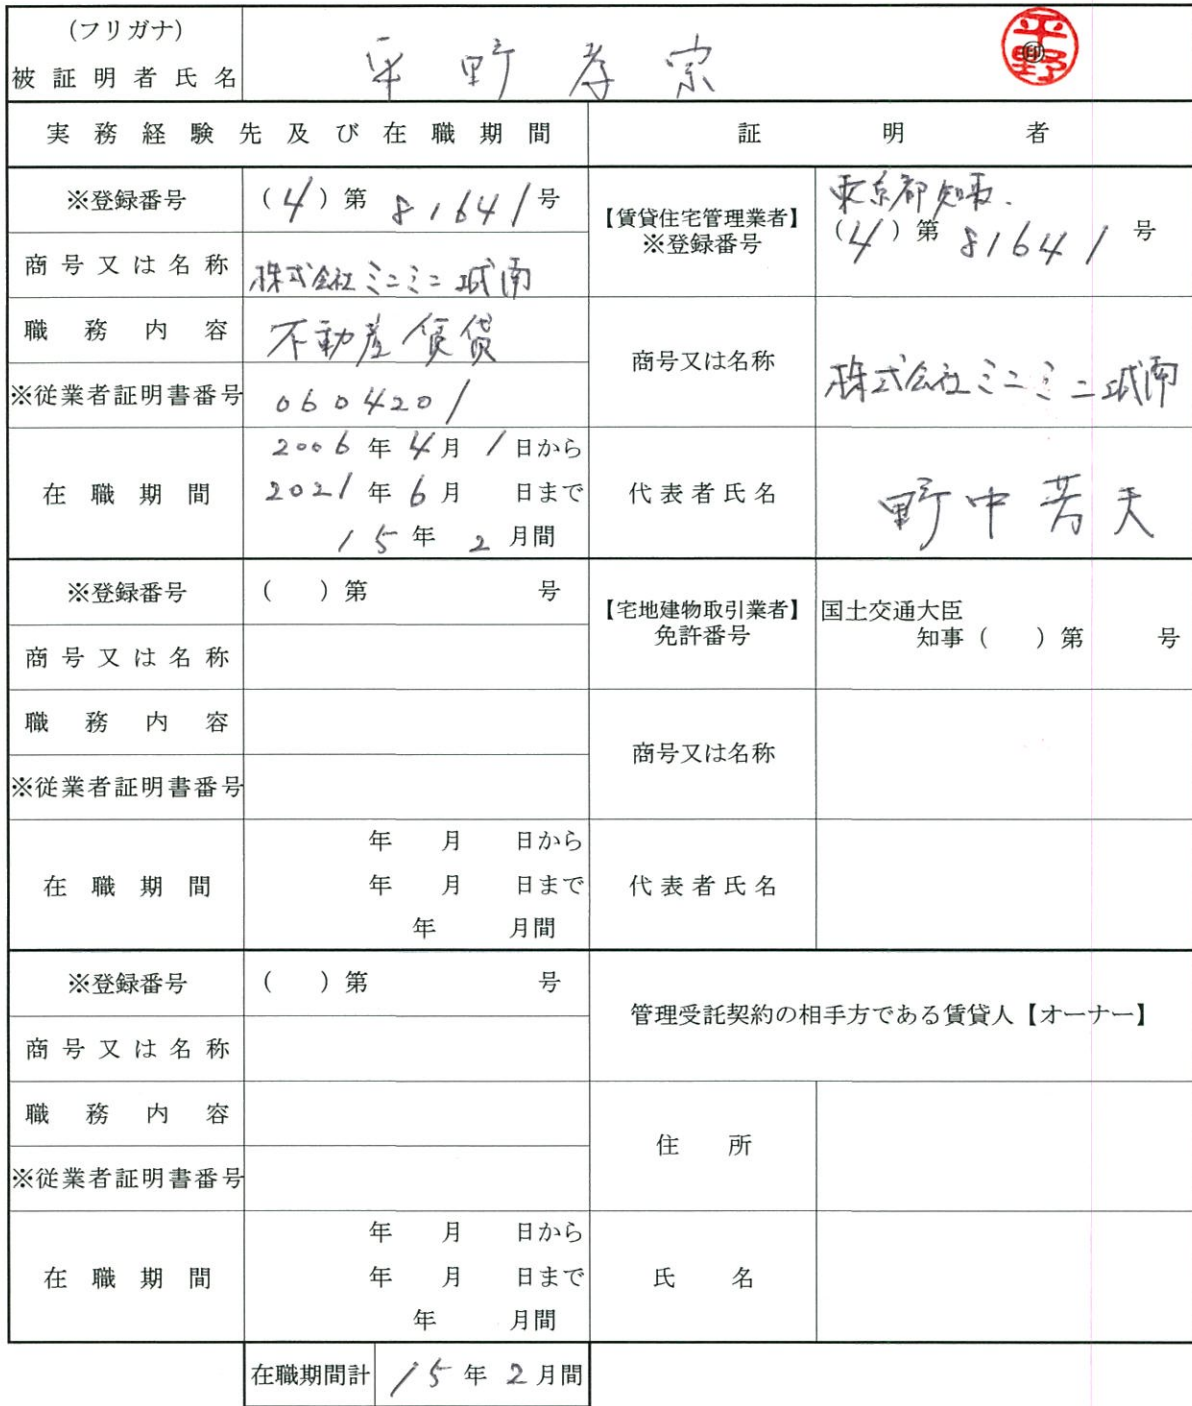 (フリガナ)
被証明者氏名 平野孝宗 平野 ㊞
実務経験先及び在職期間 証明者
※登録番号 (4)第 81641号
【賃貸住宅管理業者】
※登録番号
東京都知事.
(4)第 81641 号
商号又は名称 株式会社ミニミニ城南
職務内容 不動産賃貸
商号又は名称 株式会社ミニミニ城南
※従業者証明書番号 0604201
在職期間
2006年4月1日から
2021年6月 日まで
15年 2月間
代表者氏名 野中芳夫
※登録番号 ( )第 号
【宅地建物取引業者】
免許番号
国土交通大臣
知事( )第 号
商号又は名称
職務内容
商号又は名称
※従業者証明書番号
在職期間
年 月 日から
年 月 日まで
年 月間
代表者氏名
※登録番号 ( )第 号
管理受託契約の相手方である賃貸人【オーナー】
商号又は名称
職務内容
住所
※従業者証明書番号
在職期間
年 月 日から
年 月 日まで
年 月間
氏名
在職期間計 15年2月間